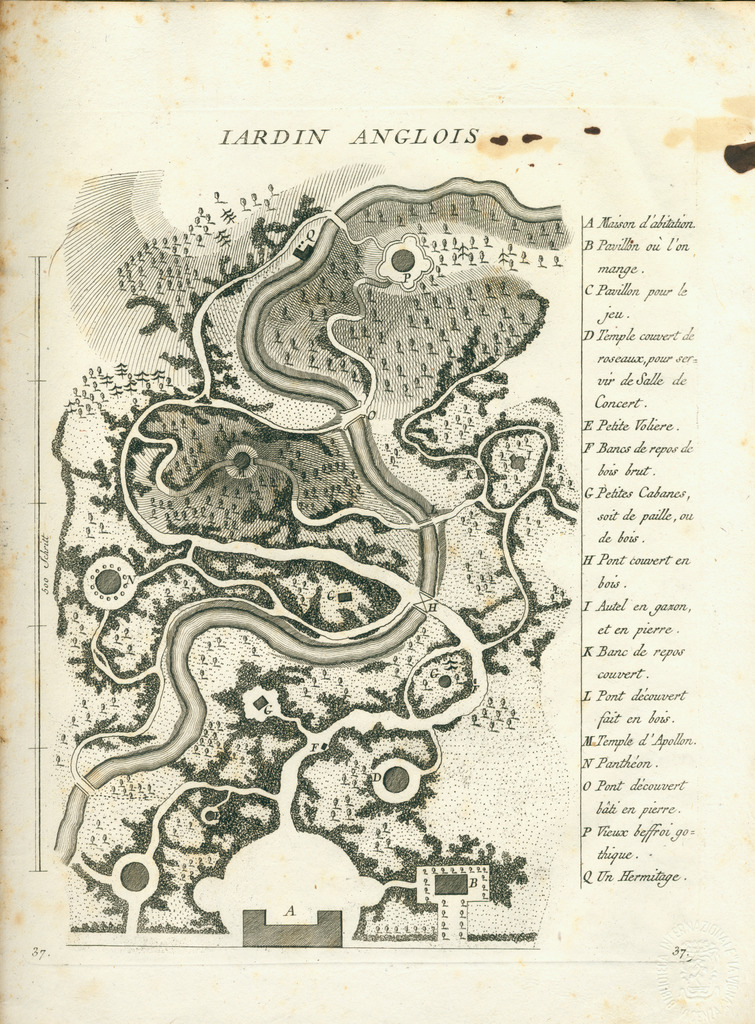 IARDIN ANGLOIS
A Maison d'abitation.
B Pavillon où l'on
mange.
C Pavillon pour le
jeu.
D Temple couvert de
roseaux, pour ser=
vir de Salle de
Concert.
E Petite Volière.
F Bancs de repos de
bois brut.
G Petites Cabanes,
soit de paille, ou
de bois.
H Pont couvert en
bois.
I Autel en gazon,
et en pierre.
K Banc de repos
couvert.
L Pont découvert
fait en bois.
M Temple d'Apollon.
N Panthéon.
O Pont découvert
bâti en pierre.
P Vieux beffroi go=
thique.
Q Un Hermitage.
500 Schritt
Q
P
O
K
N
G
H
G
F
D
B
A
37.
37.